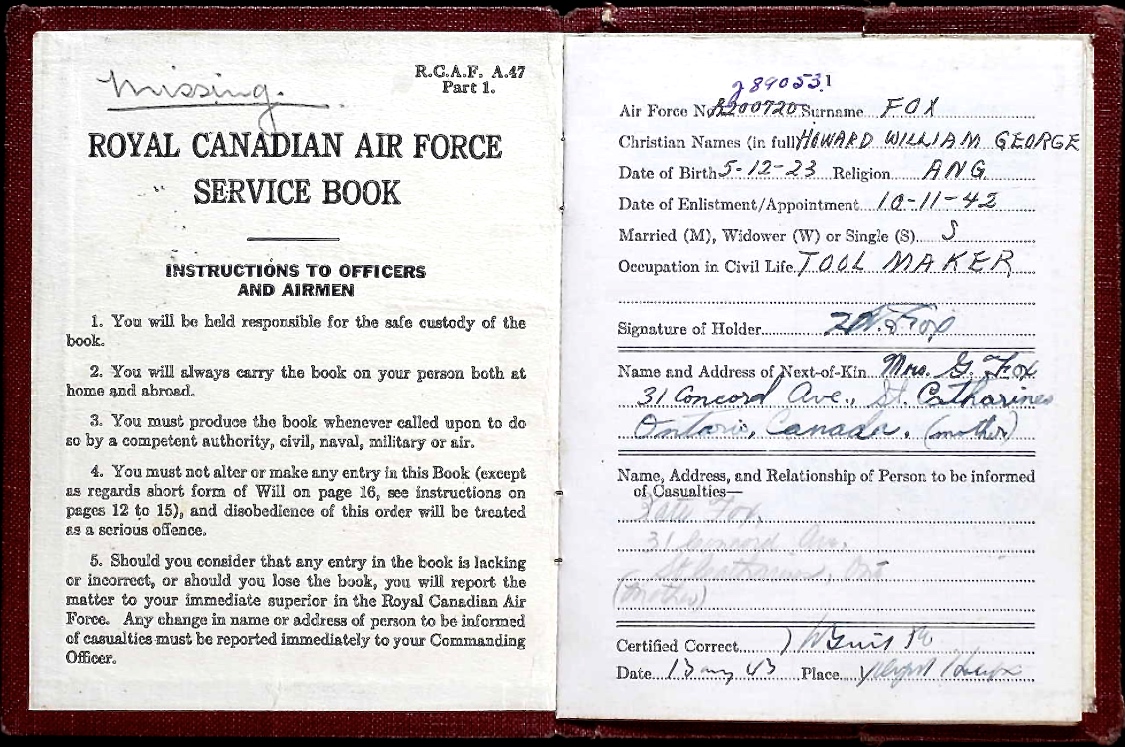 Missing.
R.C.A.F. A.47
Part 1.
ROYAL CANADIAN AIR FORCE
SERVICE BOOK
INSTRUCTIONS TO OFFICERS
AND AIRMEN
1. You will be held responsible for the safe custody of the
book.
2. You will always carry the book on your person both at
home and abroad.
3. You must produce the book whenever called upon to do
so by a competent authority, civil, naval, military or air.
4. You must not alter or make any entry in this Book (except
as regards short form of Will on page 16, see instructions on
pages 12 to 15), and disobedience of this order will be treated
as a serious offence.
5. Should you consider that any entry in the book is lacking
or incorrect, or should you lose the book, you will report the
matter to your immediate superior in the Royal Canadian Air
Force. Any change in name or address of person to be informed
of casualties must be reported immediately to your Commanding
Officer.
J89053 1
Air Force No. R200720 Surname FOX
Christian Names (in full) HOWARD WILLIAM GEORGE
Date of Birth 5-12-23 Religion ANG.
Date of Enlistment/Appointment 10-11-42
Married (M), Widower (W) or Single (S) S
Occupation in Civil Life TOOL MAKER
Signature of Holder Fox
Name and Address of Next-of-Kin Mrs. G. Fox
31 Concord Ave., St. Catharines
Ontario, Canada. (mother)
Name, Address, and Relationship of Person to be informed
of Casualties—
Kate Fox,
31 Concord Ave.
St Catharines, Ont
(Mother)
Certified Correct
Date 43 Place